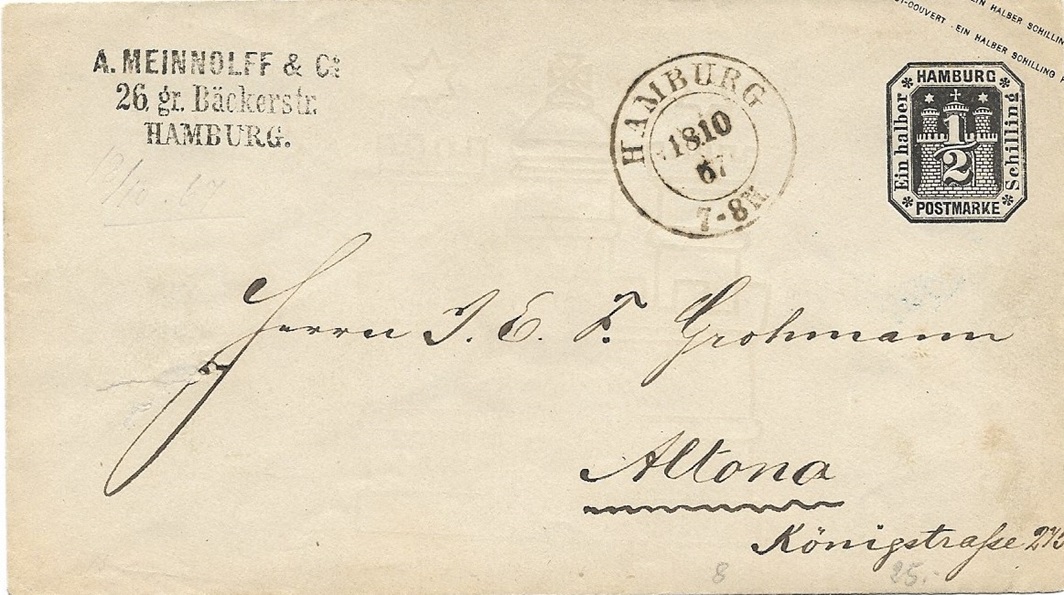 A. MEINNOLFF & Co
26, gr. Bäckerstr.
HAMBURG.
HAMBURG
18.10
67
7-8 N
EIN HALBER SCHILLING
COUVERT - EIN HALBER SCHILLING
HAMBURG
Ein halber
1/2
Schilling
POSTMARKE
Herrn J. E. F. Grohmann
Altona
Königstraße
8
25.-